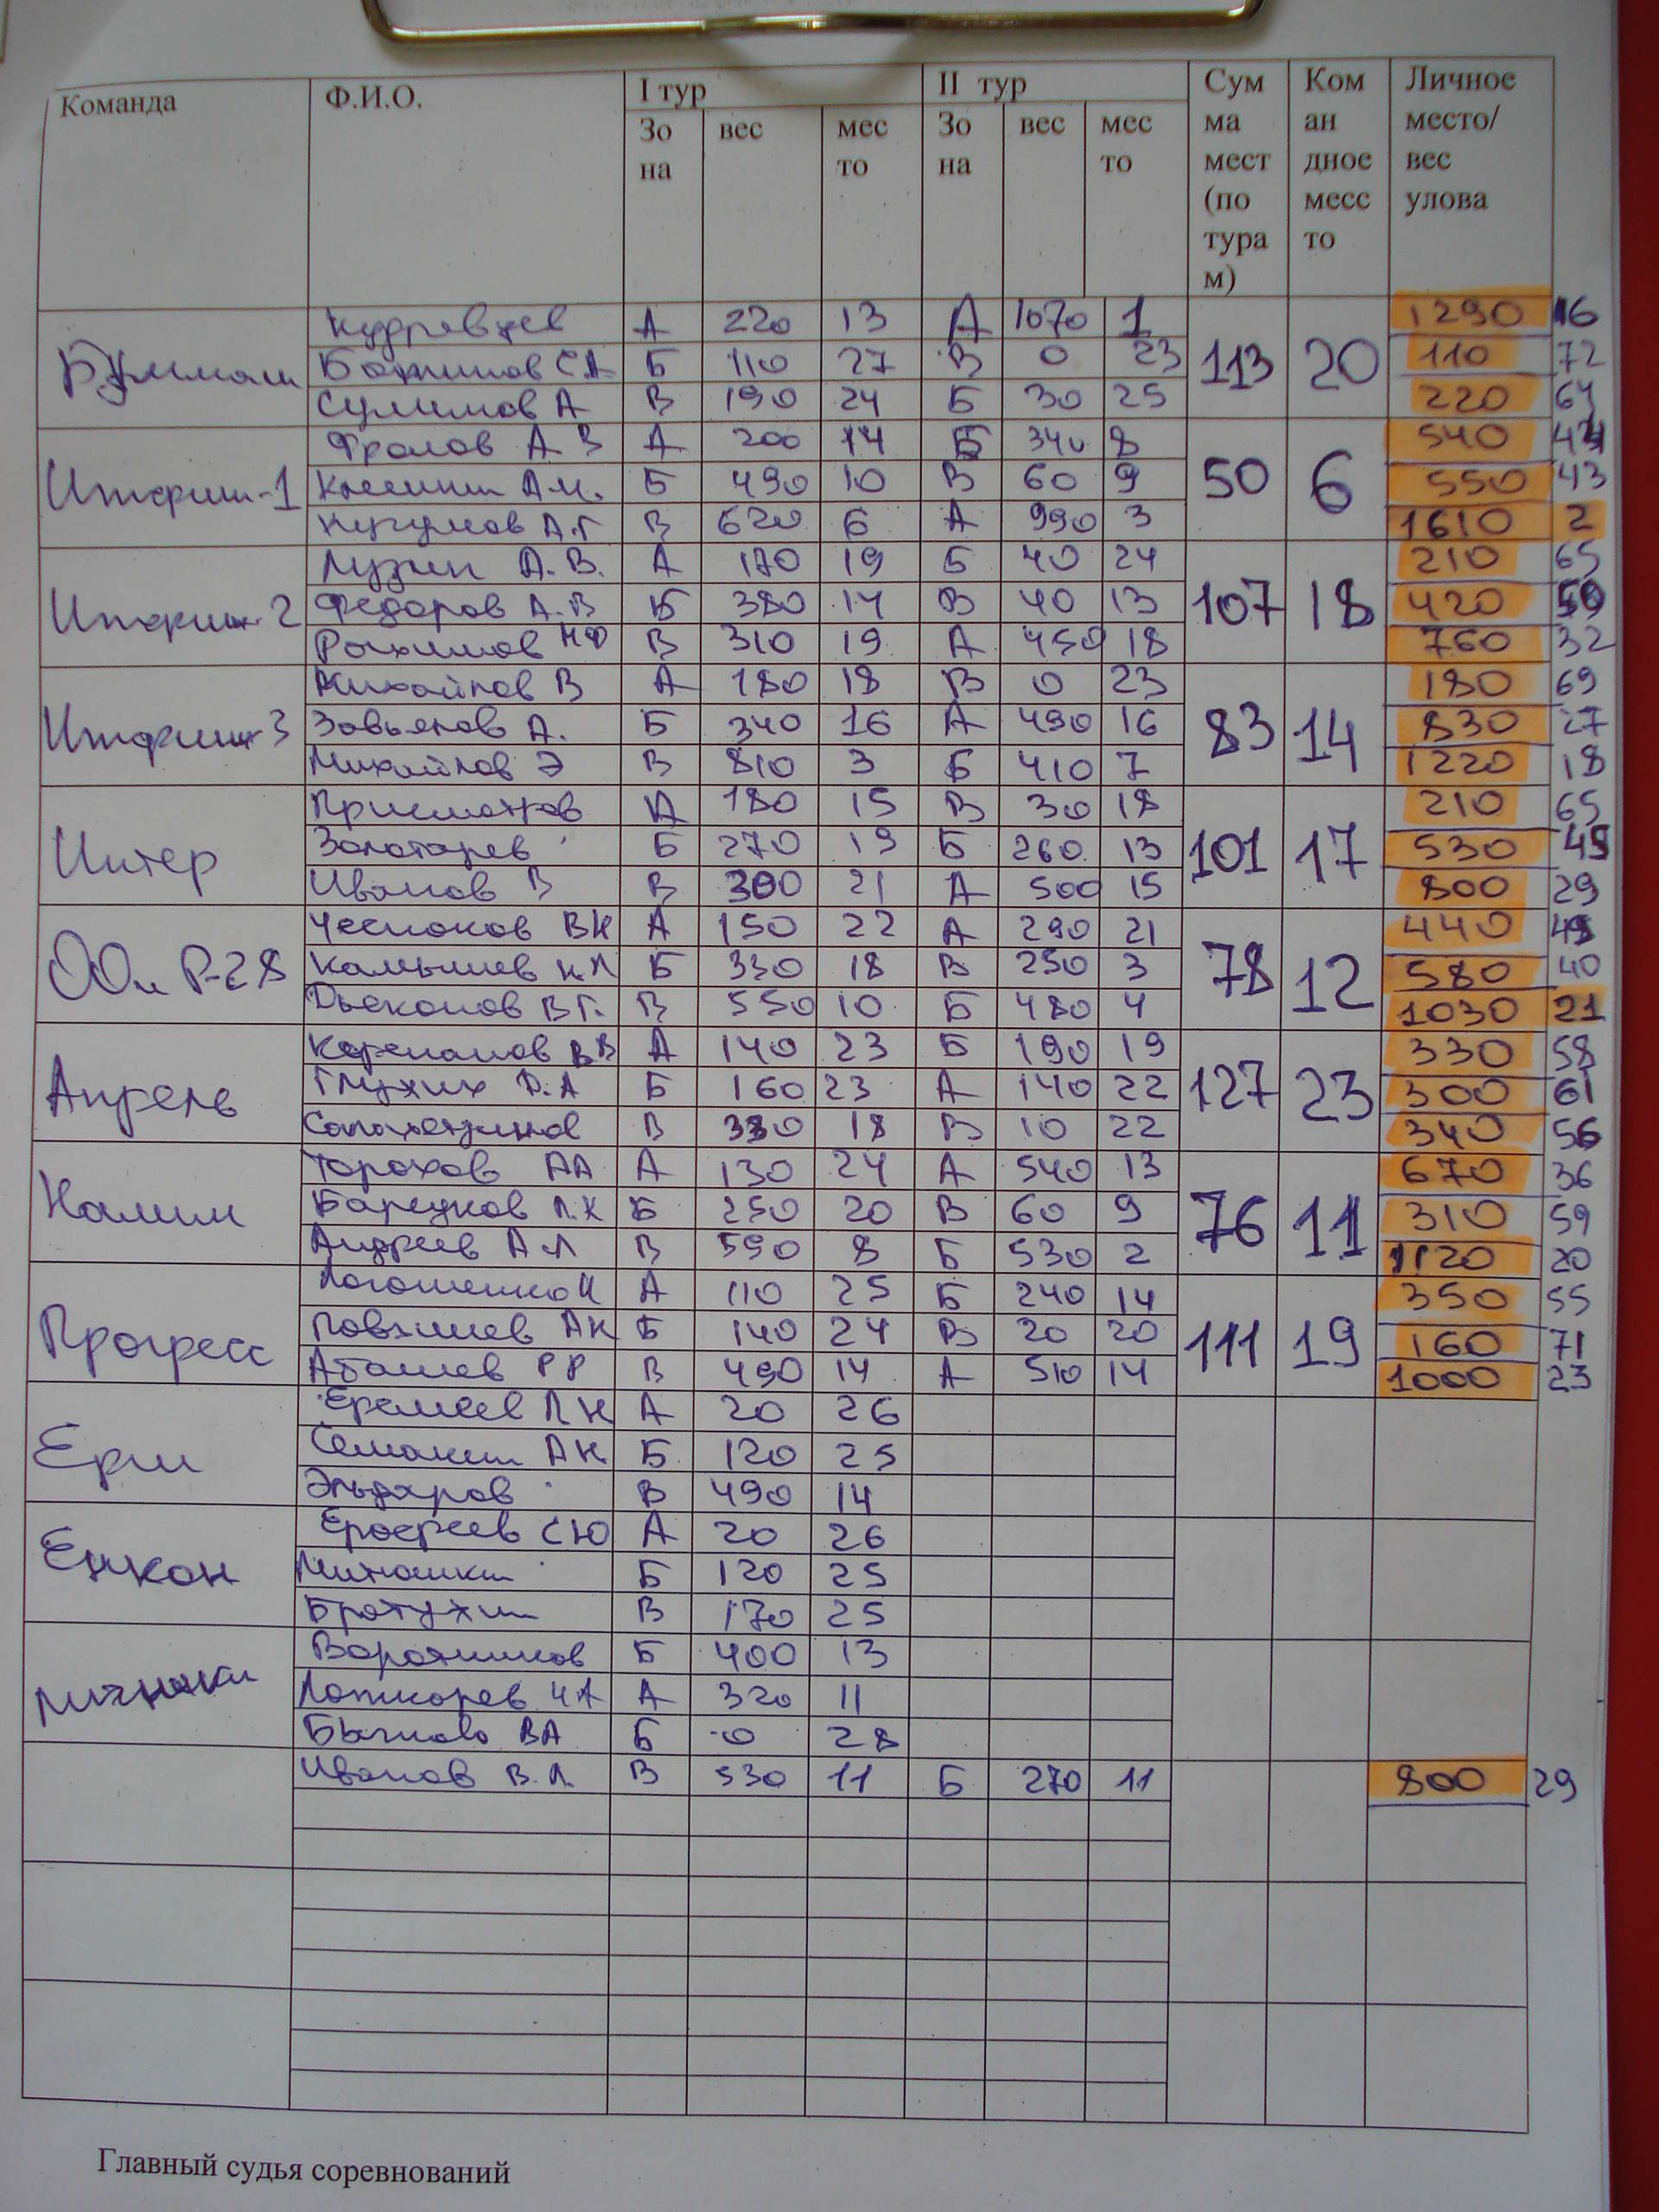 Команда Ф.И.О. I тур II тур Сум Ком Личное
Зо вес мес Зо вес мес ма ан место/
на то на то мест дное вес
(по месс улова
тура то
м)
Кудрявцев А 220 13 А 1070 1 1290 16
Буммаш Б 110 27 В 0 23 113 20 110 72
Сулимов А В 190 24 Б 30 25 220 64
Фролов А В А 200 14 Б 340 8 540
-1 А.И. Б 490 10 В 60 9 50 6 550 43
А.Г В 620 6 А 990 3 1610 2
Лузин А.В. А 170 19 Б 40 24 210 65
2 Федоров А.В Б 380 14 В 40 13 107 18 420 50
НФ В 310 19 А 450 18 760 32
Михайлов В А 180 18 В 0 23 180 69
3 Завьялов А. Б 340 16 А 490 16 83 14 830 27
Михайлов Э В 810 3 Б 410 7 1220 18
А 180 15 В 30 18 210 65
Интер Золотарев Б 270 19 Б 260 13 101 17 530 45
Иванов В В 300 21 А 500 15 800 29
Чесноков ВН А 150 22 А 290 21 440
Р-28 Камышев Б 330 18 В 250 3 78 12 580 40
Дьяконов В Г. В 550 10 Б 480 4 1030 21
Корепанов В В А 140 23 Б 190 19 330 58
Апрель Глухих Д.А Б 160 23 А 140 22 127 23 300 61
В 330 18 В 10 22 340 56
Торохов АА А 130 24 А 540 13 670 36
Налим Б 250 20 В 60 9 76 11 310 59
Андреев А Л В 590 8 Б 530 2 1120 20
А 110 25 Б 240 14 350 55
Прогресс АН Б 140 24 В 20 20 111 19 160 71
Аташев РР В 490 14 А 510 14 1000 23
Еремеев Л Н А 20 26
Ерш Семакин АН Б 120 25
Эльдаров В 490 14
Ерофеев С Ю А 20 26
Енкон Б 120 25
Братухин В 170 25
Воротников Б 400 13
личники А 320 11
Бычкова ВА Б 0 28
Иванов В.Л. В 530 11 Б 270 11 800 29
Главный судья соревнований